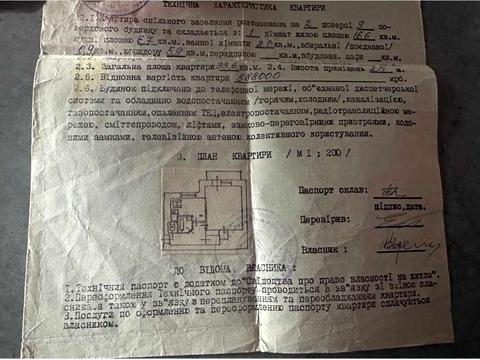 ТЕХНІЧНА ХАРАКТЕРИСТИКА КВАРТИРИ
2.1.Квартира спільного заселення розташована на 2 поверсі 9
поверхового будинку та складається з 1 кімнат жилою площею кв.м.
кухні площею 6,7 кв.м, ванної кімнати кв.м, вбиральні /поєднаної/
0,9 м, коридору 5,9 кв.м, передпокою кв.м, вбудован. шаф кв.м.
2.3. Загальна площа квартири 33,6 кв.м. 2.4. Висота приміщень 2,5 м.
2.5. Відновна вартість квартири 588000 крб.
2.6. Будинок підключено до телефонної мережі, об'єднаної диспетчерської
системи та обладнано водопостачанням /горячим,холодним/,каналізацією,
газопостачанням, опаленням ТЕЦ,електропостачанням,радіотрансляційною ме-
режею, сміттєпроводом, ліфтами, замково-переговорними пристроями, кодо-
вими замками, телевізійною антеною колективного користування.
3. ПЛАН КВАРТИРИ /М 1:200/
Паспорт склав:
підпис,дата.
Перевірив:
Власник :
ДО ВІДОМА ВЛАСНИКА:
1.Технічний паспорт є додатком до"Свідоцтва про право власності на житло".
2.Переоформлення Технічного паспорту проводиться в зв'язку зі зміною вла-
сника,а також у зв"язку з переплануванням та переобладнанням квартири.
3.Послуги по оформленню та переоформленню паспорту квартири сплачуються
власником.